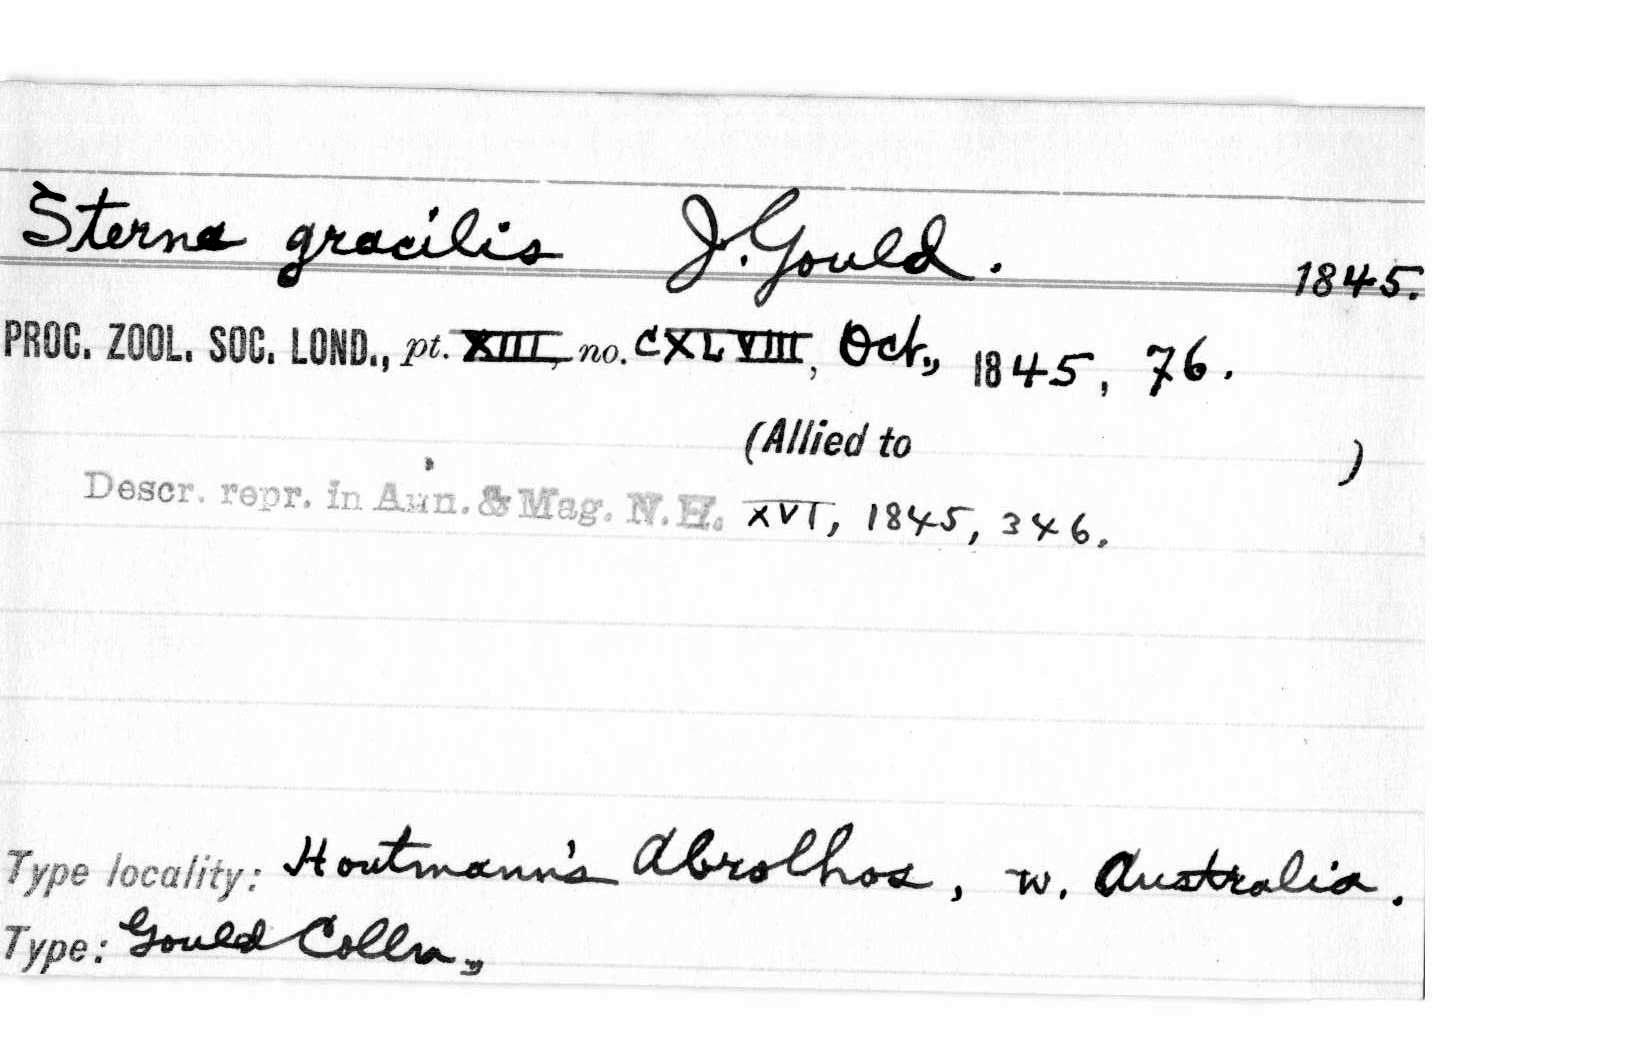 Sterna gracilis J. Gould. 1845.
PROC. ZOOL. SOC. LOND., pt. XIII, no. CXLVIII, Oct., 1845, 76.
(Allied to )
Descr. repr. in Ann. & Mag. N.H. XVI, 1845, 346.
Type locality: Houtmann's Abrolhos, W. Australia.
Type: Gould Colln.,